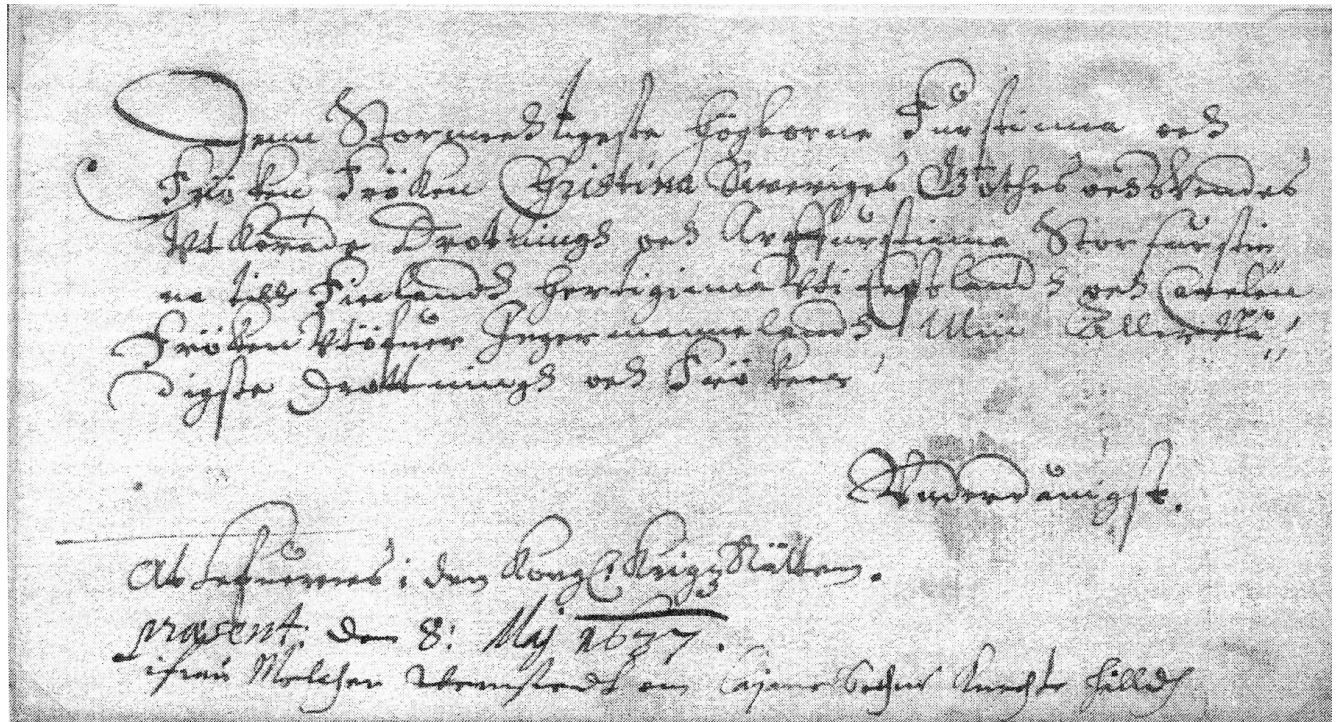 Denn Stormechtigeste Högborne Furstinna och
Fröken Fröken Christina Sweriges Göthes och Wendes
Vtkorade Drotningh och Arffurstinna Storfurstin
na till Finlandh Hertiginna Vti Estlandh och Carelen
Fröken Vtöfuer Ingermannelandh Min Allernå"
digste Drottningh och Fröken
Vnderdånigst.
At Lefuereres i den Kongl: Krigz Rätten.
præsent. den 8: Maj 1637.
ifrån Melcher Wernstedt om Cajane Knechte